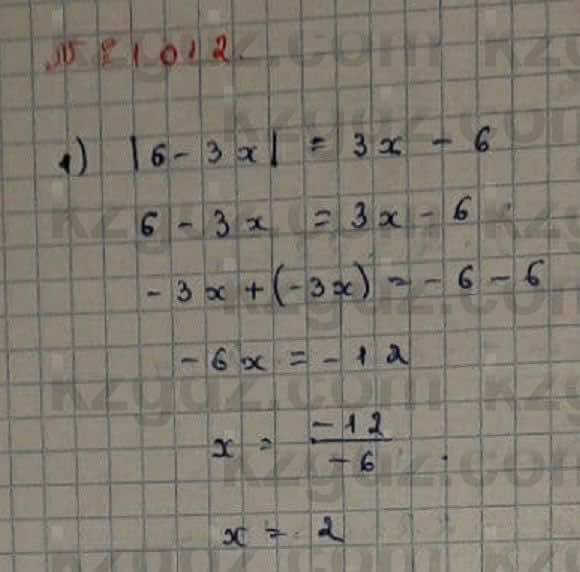 № 1012.
1) |6 - 3x| = 3x - 6
6 - 3x = 3x - 6
-3x + (-3x) = -6 - 6
-6x = -12
x = -12/-6
x = 2
kzgdz.com